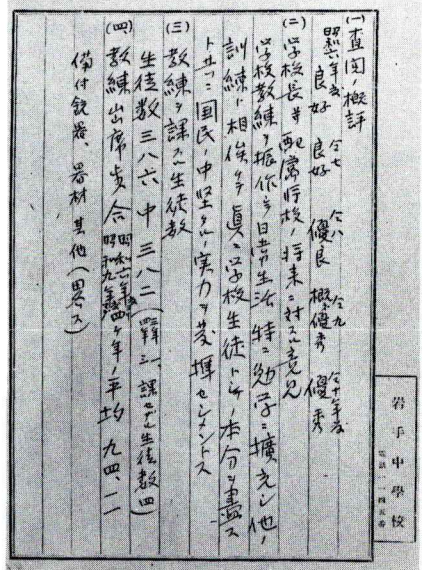 (一) 査閲概評
昭和六年度 仝七 仝八 仝九 仝十年度
良好 良好 優良 概優秀 優秀
(二) 学校長並配属将校ノ将来ニ対スル意見
学校教練ヲ振作シ日常生活特ニ勉学ニ擴充シ他ノ
訓練ト相俟ッテ眞ニ学校生徒トシテノ本分ヲ盡ス
ト共ニ國民ノ中堅タル実力ヲ発揮セシメントス
(三) 教練ヲ課スル生徒数
生徒数三八六中三八二(課セザル生徒数四)
(四) 教練出席歩合 昭和六年度 昭和九年度 四ヶ年ノ平均 九四、二
備付銃器、器材其他(畧ス)
岩手中學校
電話一一四五番